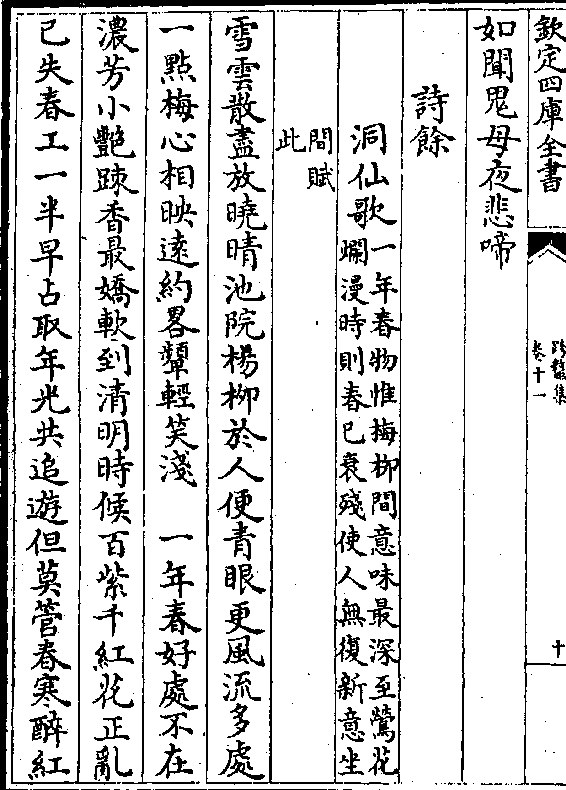 欽定四庫全書
跨鼇集
卷十一
十
如聞鬼母夜悲啼
詩餘
洞仙歌
一年春物惟梅栁間意味最深至鶯花
爛漫時則春已衰殘使人無復新意坐
間賦
此
雪雲散盡放曉晴池院楊栁於人便青眼更風流多處
一點梅心相映逺約畧顰輕笑淺　一年春好處不在
濃芳小艷疎香最嬌軟到清明時候百紫千紅花正亂
已失春工一半早占取年光共追遊但莫管春寒醉紅